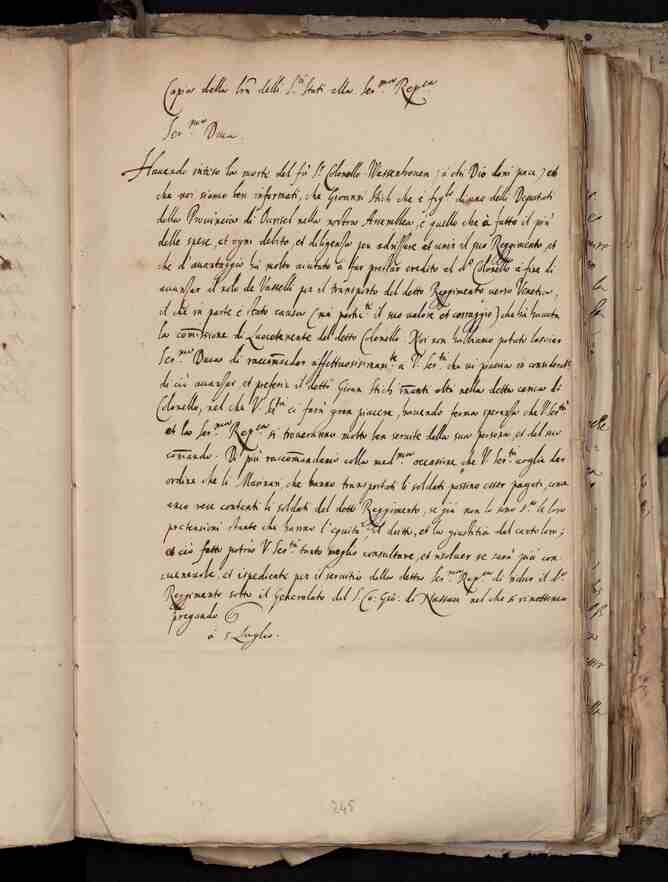 Copia della lrā delli S.ri Stati alla Ser.ma Rep.ca
Ser.mo Duca.
Havendo inteso la morte del fù S.r Colonello Wassenhouen (à chi Dio doni pace) et
che noi siamo ben informati, che Giovanni Stich che è figlo di uno delli Deputati
della Provincia di Ourisel nella nostra Assemblea, è quello che à fatto il più
delle spese, et ogni debito, et diligenza per adrissare et unir il suo Reggimento, et
che d'avantaggio hà molto aiutato à far prestar credito al d.o Colonello à fine di
avanzar il nolo de Vasselli per il transporto del detto Reggimento verso Venetia,
il che in parte è stato causa (mà partic.te il suo valore et corraggio) che hà havuta
la com̄issione di Luocotenente del detto Colonello. Noi non habbiamo potuto lasciar
Ser.mo Duca di raccom̄andar affettuosissimam.te a V. Ser.tà che vi piaccia in consideratc
di ciò avanzar et preferir il detto Giovan Stich inanti altri nella detta carica di
Colonello, nel che V. Ser.tà ci farà gran piacere, havendo ferma speranza che V. Ser.tà
et la Ser.ma Rep.ca si troveranno molto ben servite della sua persona, et del suo
com̄ando. Di più raccom̄andiamo colla med.ma occasione, che V. Ser.tà voglia dar
ordine che li Marinari, che hanno transportati li soldati possino esser pagati, come
anco rese contenti li soldati del detto Reggimento, se già non lo sono le loro
pretensioni stante che hanno l'equità et dritto, et la giustitia del cartolo;
et ciò fatto potrà V. Ser.tà tanto meglio consultare, et risoluer se sarà più con
veneuole, et ispediente per il servitio della detta Ser.ma Rep.ca di ridur il d.o
Reggimento sotto il Generalato del S. Co: Gio: di Nassau nel che si rimettemo
pregando
à 5 Luglio.
245